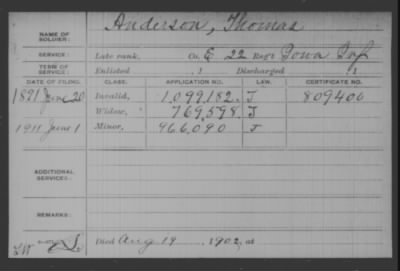 NAME OF SOLDIER: Anderson, Thomas
SERVICE: Late rank, Co. E 22 Reg't Iowa Inf
TERM OF SERVICE: Enlisted , 1 Discharged , 1
DATE OF FILING. CLASS. APPLICATION NO. LAW. CERTIFICATE NO.
1891 June 20 Invalid, 1,099,182. J 809400
Widow, 769,598. J
1911 June 1 Minor, 966,090 J
ADDITIONAL SERVICES:
REMARKS:
Died Aug 19 , 1902, at